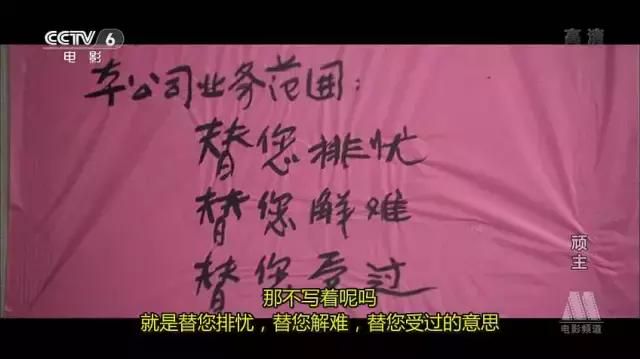 CCTV 6
电影
高清
本公司业务范围：
替您排忧
替您解难
替您受过
顽主
电影频道
那不写着呢吗
就是替您排忧，替您解难，替您受过的意思